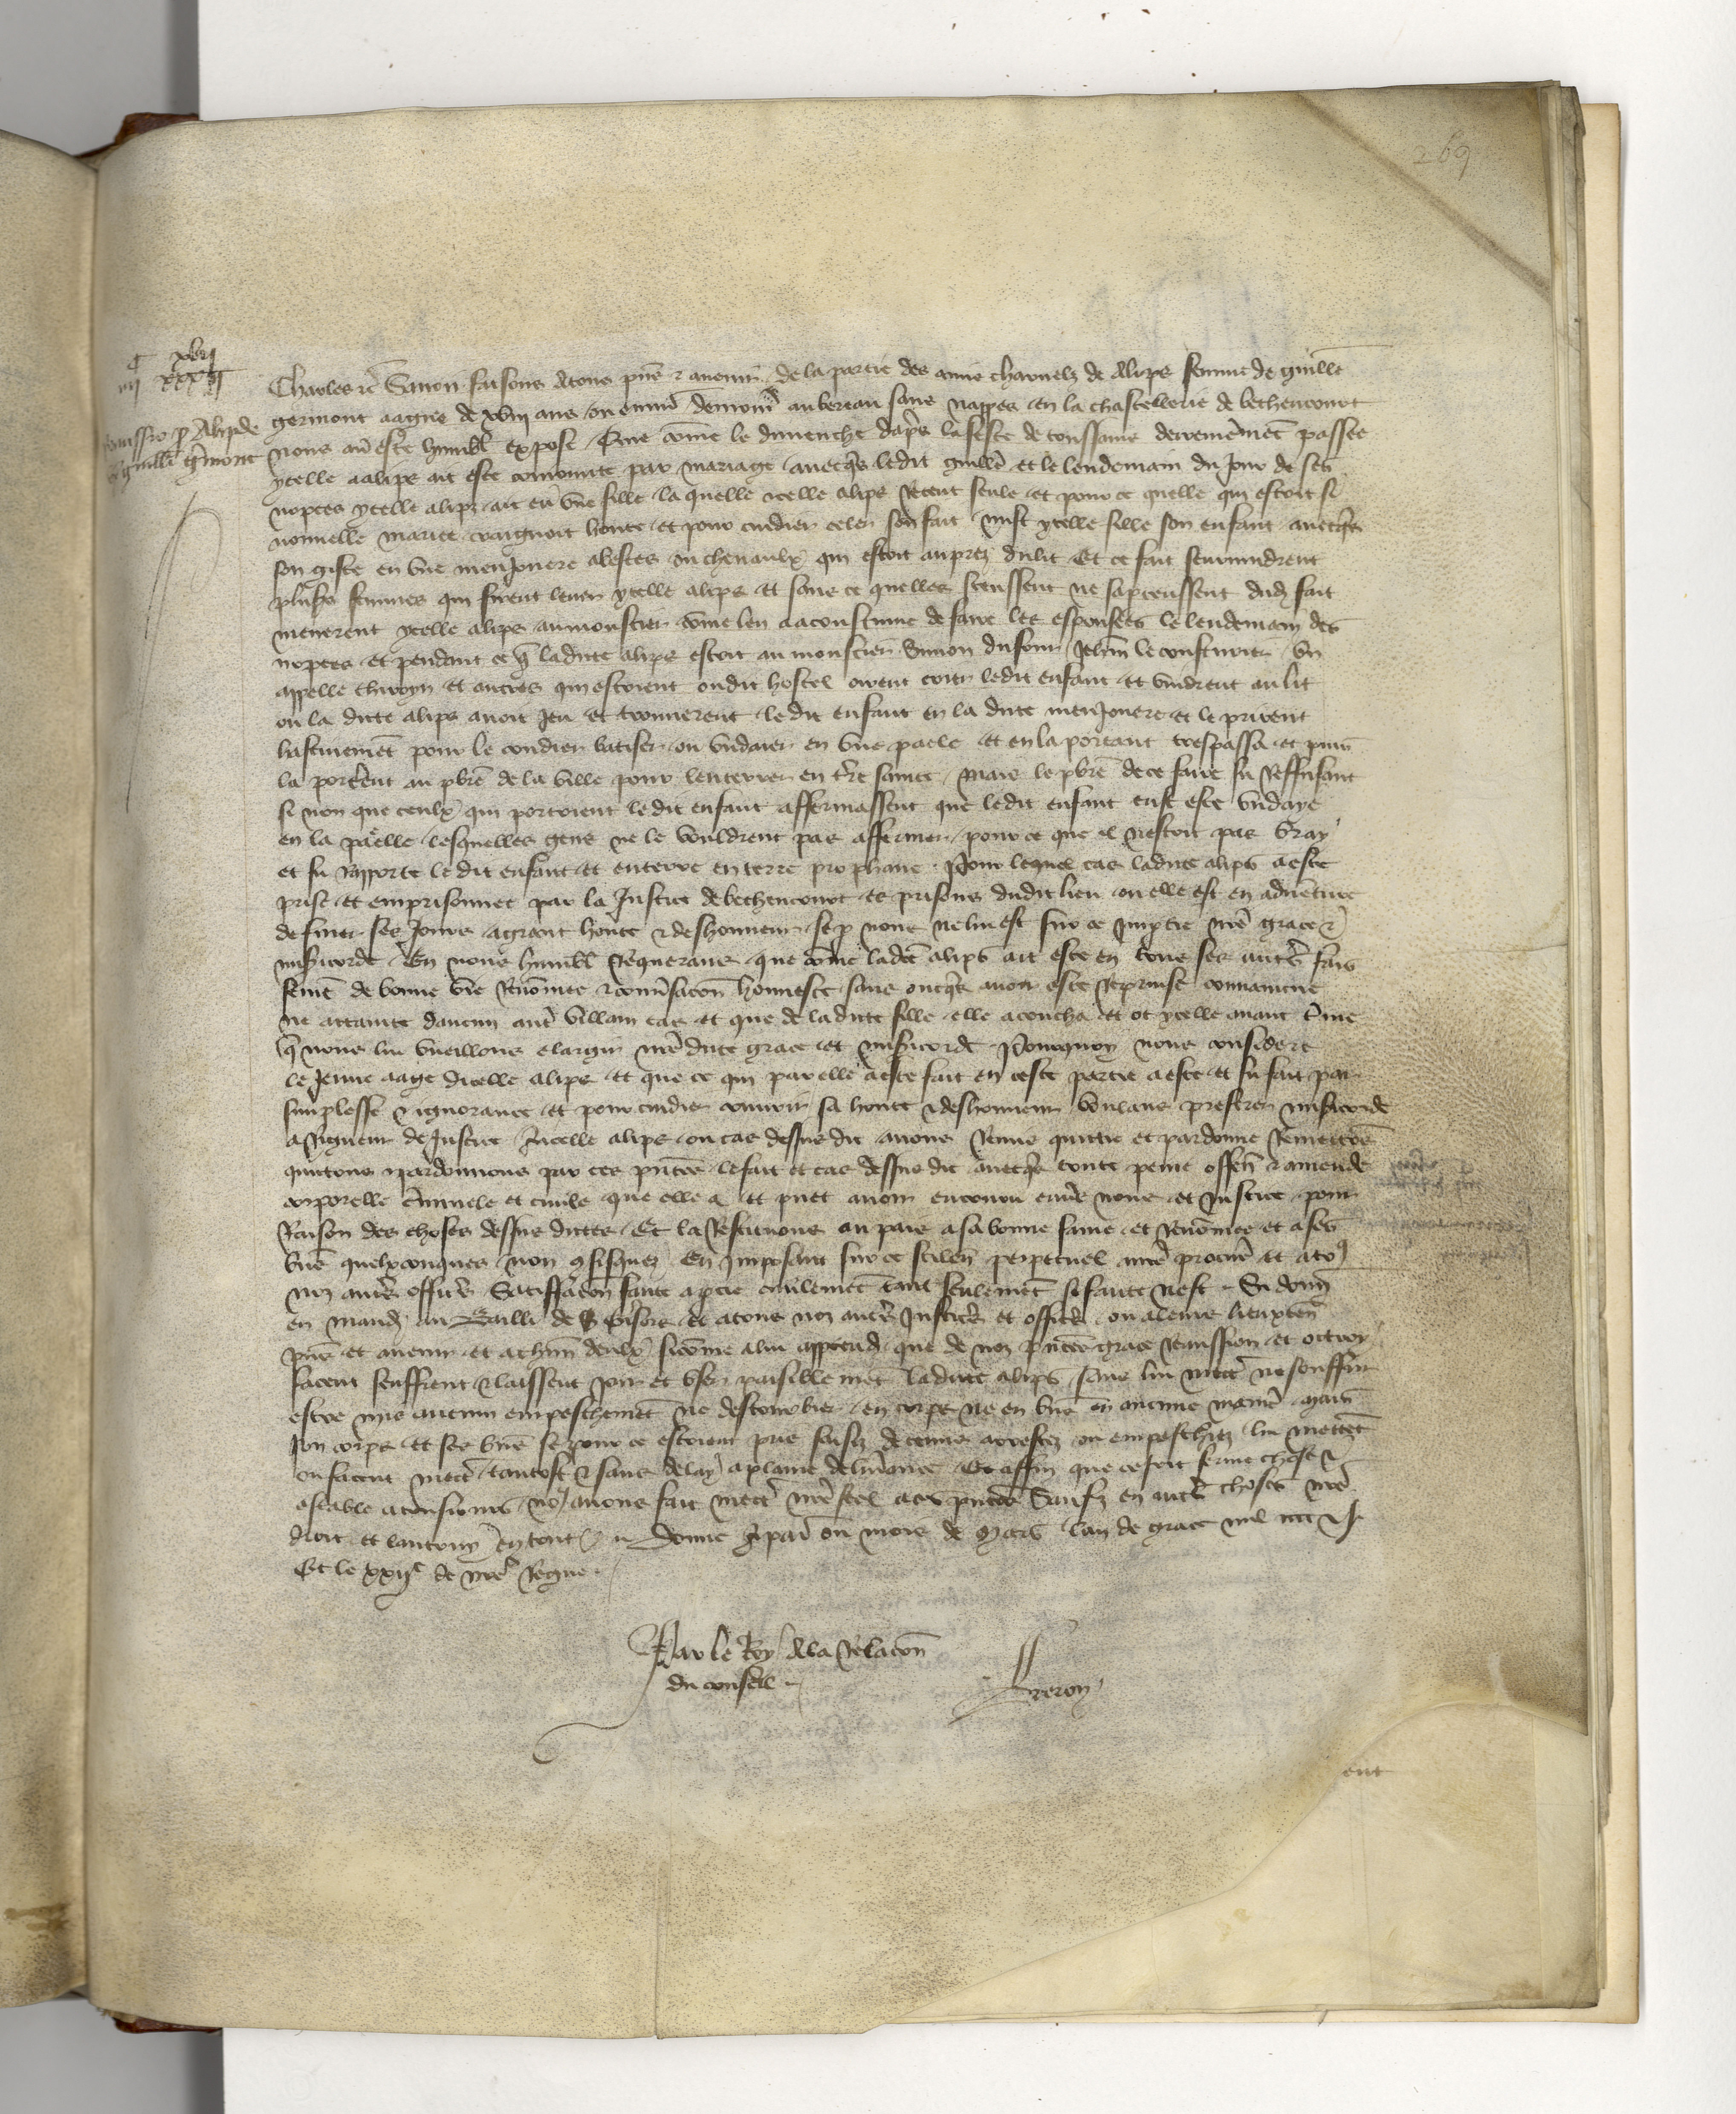 269
xvij
iiij xxxij
Remissio p Alipde
Guillī Gmont
Charles ēc Savon faisons Atous pns ⁊ avenir de la partie des amis charnelz de Alips femme de guillē
germont aagiee de xviij ans ou envirō demour au bereau sans nappes en la chastellerie de bethencourt
nous avoir este humbl expose Que cōme le dimenche dapres la feste de toussains derrenieremēt passee
ycelle aalips ait este conioincte par mariage avecqs ledit guillē et le lendemain du Jour de ses
nopces ycelle alips ait eu une fille la quelle icelle alips Recent seule et pour ce quelle qui estoit si
nouvelle mariee craignoit honte et pour cuidier celer son fait mist ycelle fille son enfant avecqs
son giste en une menJouere a bestes ou chevaulx qui estoit auprez du lit Et ce fait seurvindrent
plusrs femmes qui firent lever ycelle alips et sans ce quelles sceussent ne sapceussent dudit fait
menerent ycelle alips au moustier cōme len a acoustume de faire les espousees le lendemain des
nopces et pendant ce q ladicte alips estoit au moustier Simon dufour Jehan le cousturier un
appelle thiroyn et autres qui estoient oudit hostel oirent crier ledit enfant et vindrent au lit
ou la dicte alips avoit Jeu et trouverent ledit enfant en la dicte menJouere et le prirent
hastivemēt pour le cuidier batiser ou undaier en une paele et en la portant trespassa et puis
la porterent au pbrē de la ville pour lenterrer en tre saincte mais le pbrē de ce faire fu Reffusant
si non que ceulx qui portoient ledit enfant affermassent que ledit enfant eust este undaye
en la paelle lesquelles gens ne le vouldrent pas affermer pour ce que il nestoit pas vray
et fu Rapporte ledit enfant et enterre en terre prophane Pour lequel cas ladicte alips a este
prise et emprisonnee par la Justice de bethencourt es prisons dudit lieu ou elle est en adventure
de finer ses Jours a grant honte ⁊ deshonneur se p nous ne lui est sur ce imptie nrē grace ⁊
misicorde En nous humbl Requerans que cōme ladcte alips ait este en tous ses autrs fais
femē de bonne vie Renōmee ⁊ conversacōn honneste sans oncqs avoir este Reprinse convaincue
ne attainte daucun autr villain cas et que de ladicte fille elle acoucha et ot ycelle avant time
q nous lui vueillons elargir nrē dicte grace et misicorde Pourquoy nous considere
le Jeune aage dicelle alips et que ce qui par elle a este fait en ceste partie a este et fu fait par
simplesse ⁊ ignorance et pour cuidier couvrir sa honte ⁊ deshonneur Voulans preferer misicorde
a Rigueur de Justice A icelle alips ou cas dessus dit avons Remis quittie et pardonne Remettons
quittons ⁊ pardonnons par ces pntes le fait et cas dessus dit avecqs toute peine offense ⁊ amende
corporelle criminele et civile que elle a et puet avoir encouru envs nous et Justice pour
Raison des choses dessus dictes Et la Restituons au pais a sa bonne fame et Renōmee et a ses
biens quelxconques non cfisquez En Imposant sur ce scilence perpetuel a nrē procur et a to9
noz autrs officrs Satiffacōn faicte a ptie civilement tant seulement se faicte nest Si donn
en mand au Bailli de Gisors et a tous noz autrs Justicrs et officrs ou a leurs lieuxten
pns et avenir et a chun deulx sicōme a lui apptend que de noz pntes grace Remission et ottroy
facent seuffrent ⁊ laissent Joir et user paisiblemēt ladicte alips sans lui mettre ne souffrir
estre mis aucun empeschemēt ne destourbier en corps ne en biens en aucune manie mais
son corps et ses biens se pour ce estoient pris saisiz detenus arrestez ou empeschiez lui mettent
ou facent mettre tantost ⁊ sans delay a plaine delivrance Et affin que ce soit ferme chose ⁊
estable a tousiours no9 avons fait mettr nrē seel a ces pntes Sauf en autrs choses nrē
droit et lautruy en tout Donne a paris ou mois de Mars lan de grace mil cccc ⁊ I
Et le xxije de nre Regne
Par le Roy A la Relacōn
du conseil
Freron
ent